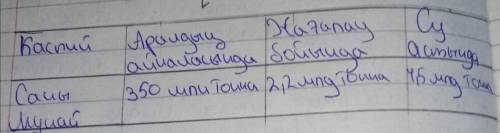 Каспий Аралдың айналасында Жағалау бойында Су астында
Саны 350 млн тонна 2,2 млрд тонна 4,5 млрд тонна
Мұнай